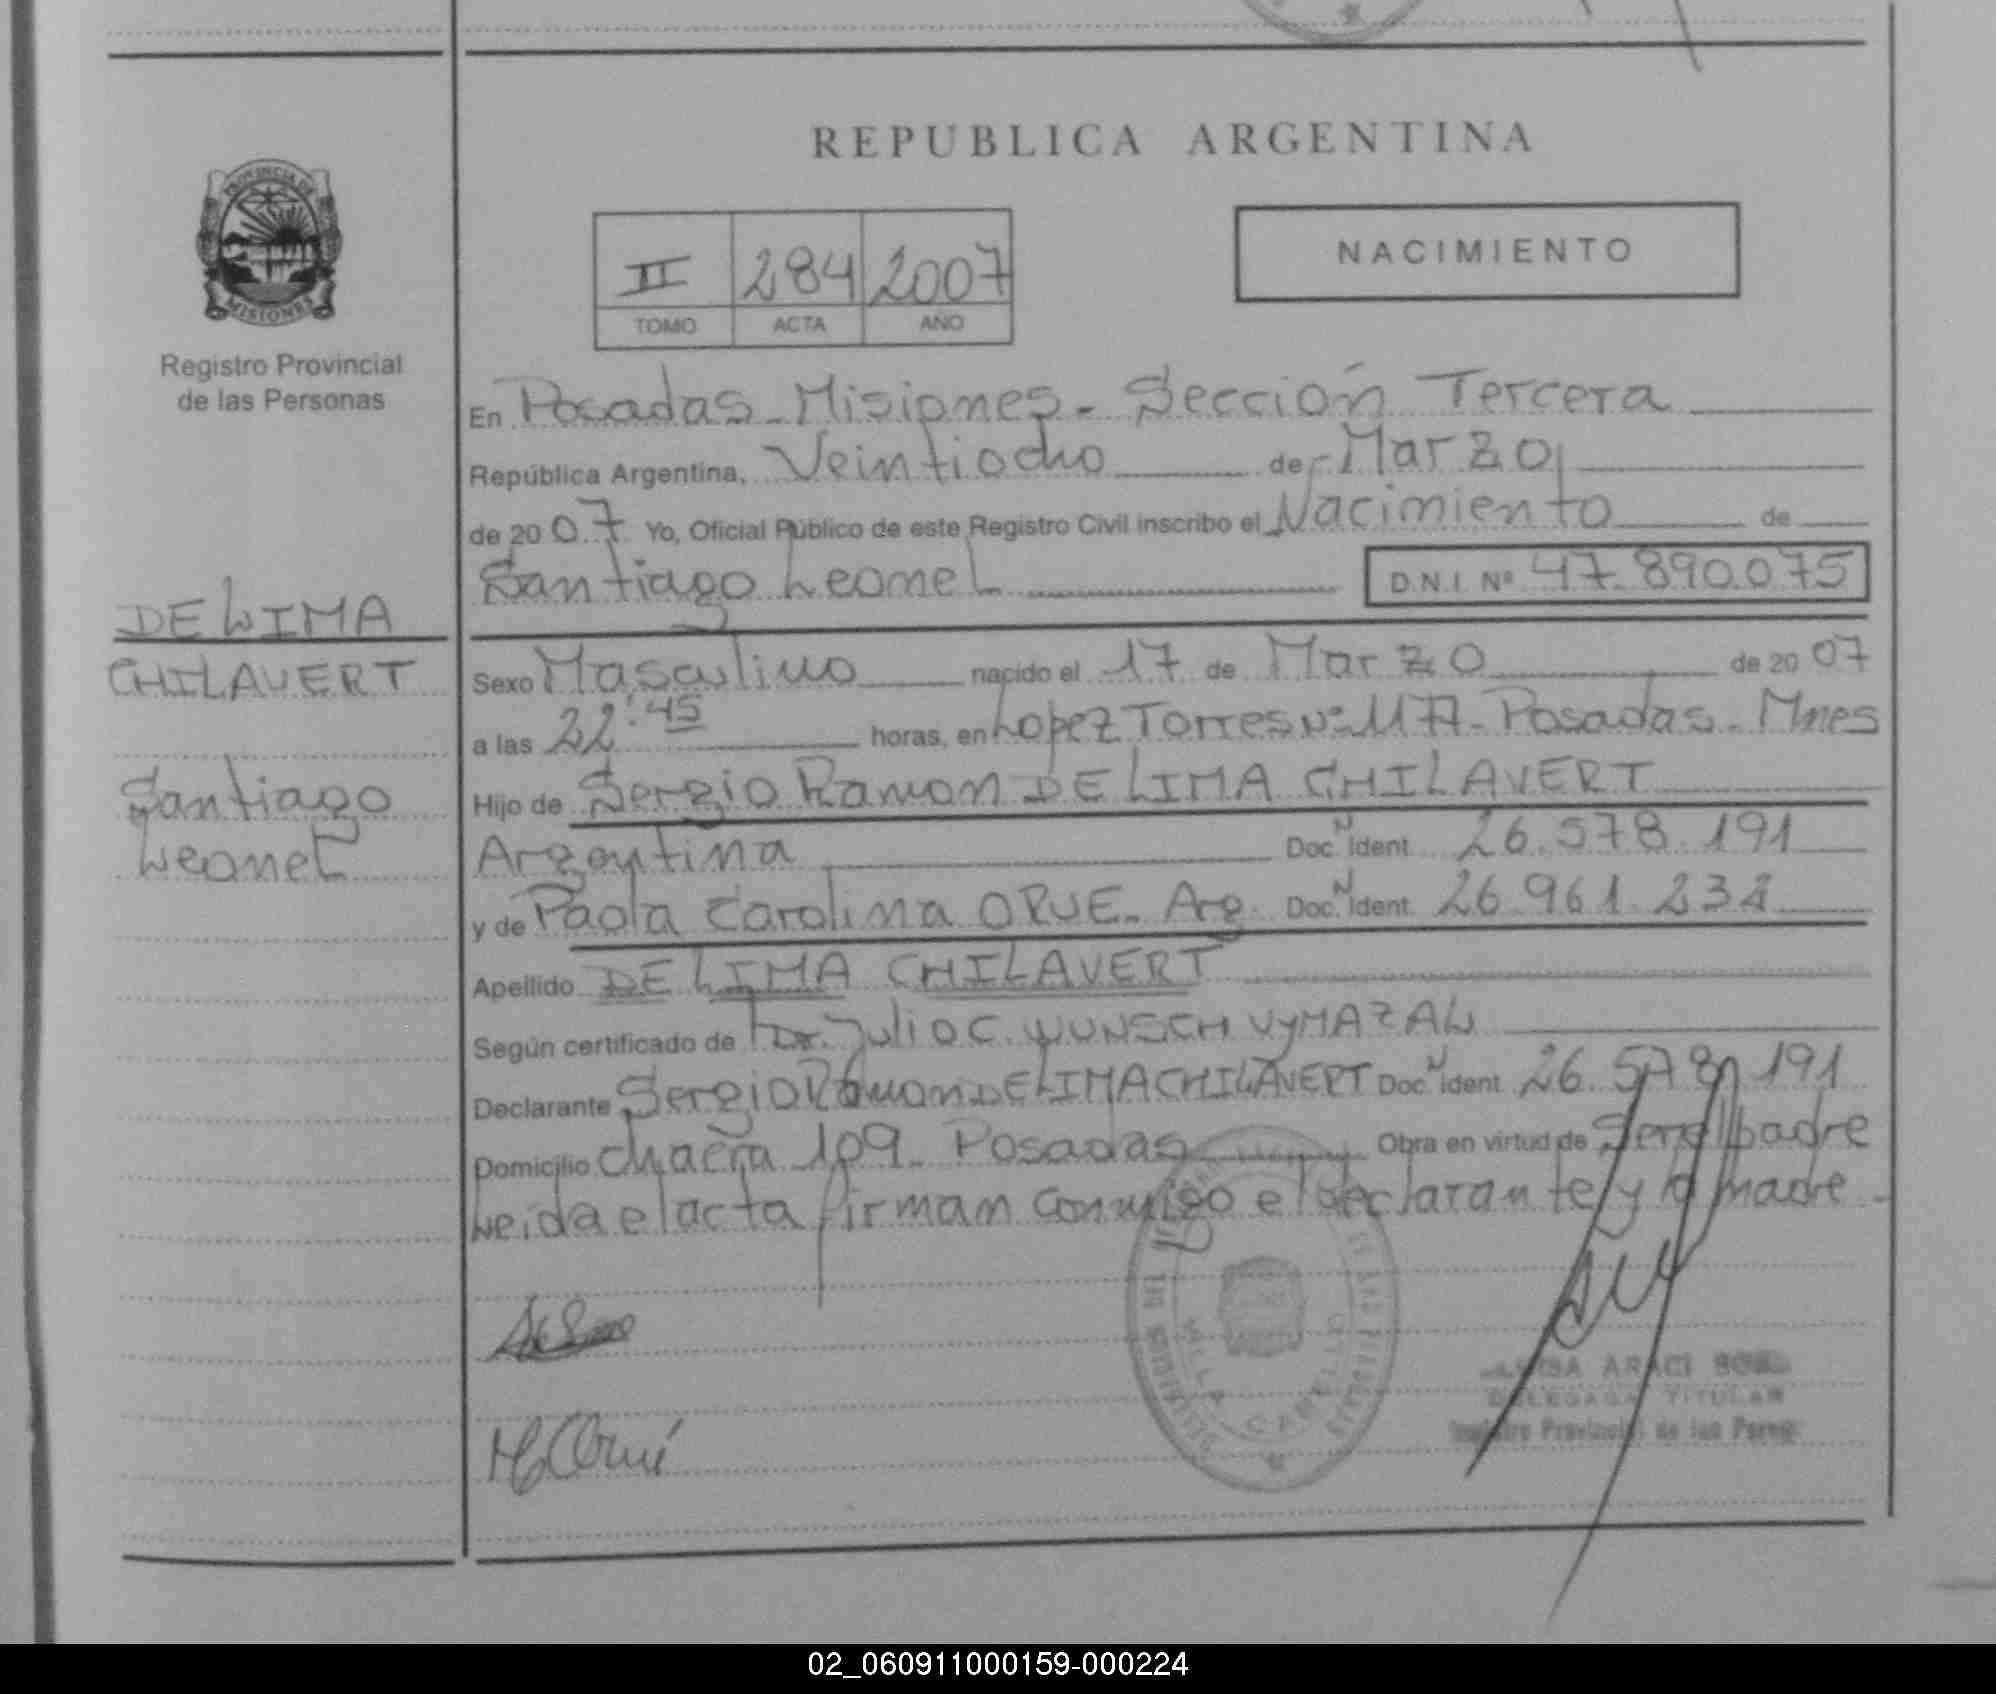 REPUBLICA ARGENTINA
PROVINCIA DE
MISIONES
Registro Provincial
de las Personas
NACIMIENTO
II 284 2007
TOMO ACTA AÑO
En Posadas - Misiones - Sección Tercera
República Argentina, Veintiocho de Marzo
de 2007 Yo, Oficial Público de este Registro Civil inscribo el Nacimiento de
Santiago Leonel D.N.I. Nº 47.890.075
DE LIMA
CHILAVERT
Santiago
Leonel
Sexo Masculino nacido el 17 de Marzo de 2007
a las 22:45 horas, en Lopez Torres Nº 1177 - Posadas - Mnes
Hijo de Sergio Ramon DE LIMA CHILAVERT
Argentina Doc. N Ident. 26.578.191
y de Paola Carolina ORUE - Arg. Doc. N Ident. 26.961.232
Apellido DE LIMA CHILAVERT
Según certificado de Dr. Julio C. WUNSCH VYMAZAL
Declarante Sergio Ramon DE LIMA CHILAVERT Doc. N Ident. 26.578.191
Domicilio Chacra 109 - Posadas Obra en virtud de Ser el padre
Leida el acta firman conmigo el declarante y la madre -
VILLA CABELLO
ARACI
DELEGADA TITULAR
Registro Provincial de las
02_060911000159-000224